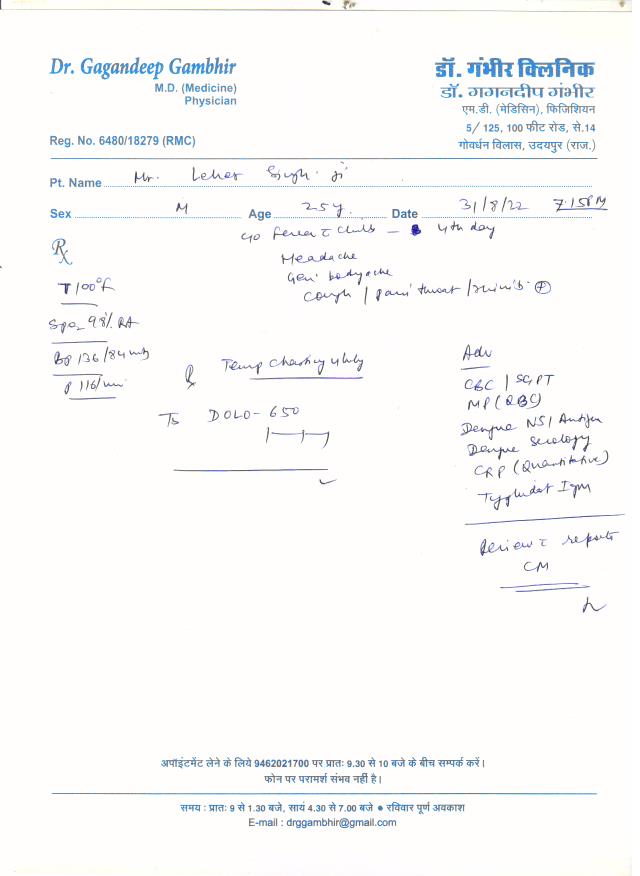 Dr. Gagandeep Gambhir
M.D. (Medicine)
Physician
Reg. No. 6480/18279 (RMC)
डॉ. गंभीर क्लिनिक
डॉ. गगनदीप गंभीर
एम.डी. (मेडिसिन), फिजिशियन
5/ 125, 100 फीट रोड, से.14
गोवर्धन विलास, उदयपुर (राज.)
Pt. Name Mr. Leher Singh ji
Sex M Age 25y Date 31/8/22 7.15PM
Rx
c/o Fever c chills - 4th day
Headache
Gen. bodyache
Cough / pain throat /
T 100°f
Spo2 98% RA
Bp 136/84
P 116/min
Rx Temp Charting 4 hrly
Tb DOLO-650
Adv
CBC / SGPT
MP (QBC)
Dengue NS1 Antigen
Dengue Serology
CRP (Quantitative)
Typhidot Igm
Review c reports
CM
अपॉइंटमेंट लेने के लिये 9462021700 पर प्रातः 9.30 से 10 बजे के बीच सम्पर्क करें।
फोन पर परामर्श संभव नहीं है।
समय : प्रातः 9 से 1.30 बजे, सायं 4.30 से 7.00 बजे ● रविवार पूर्ण अवकाश
E-mail : drggambhir@gmail.com